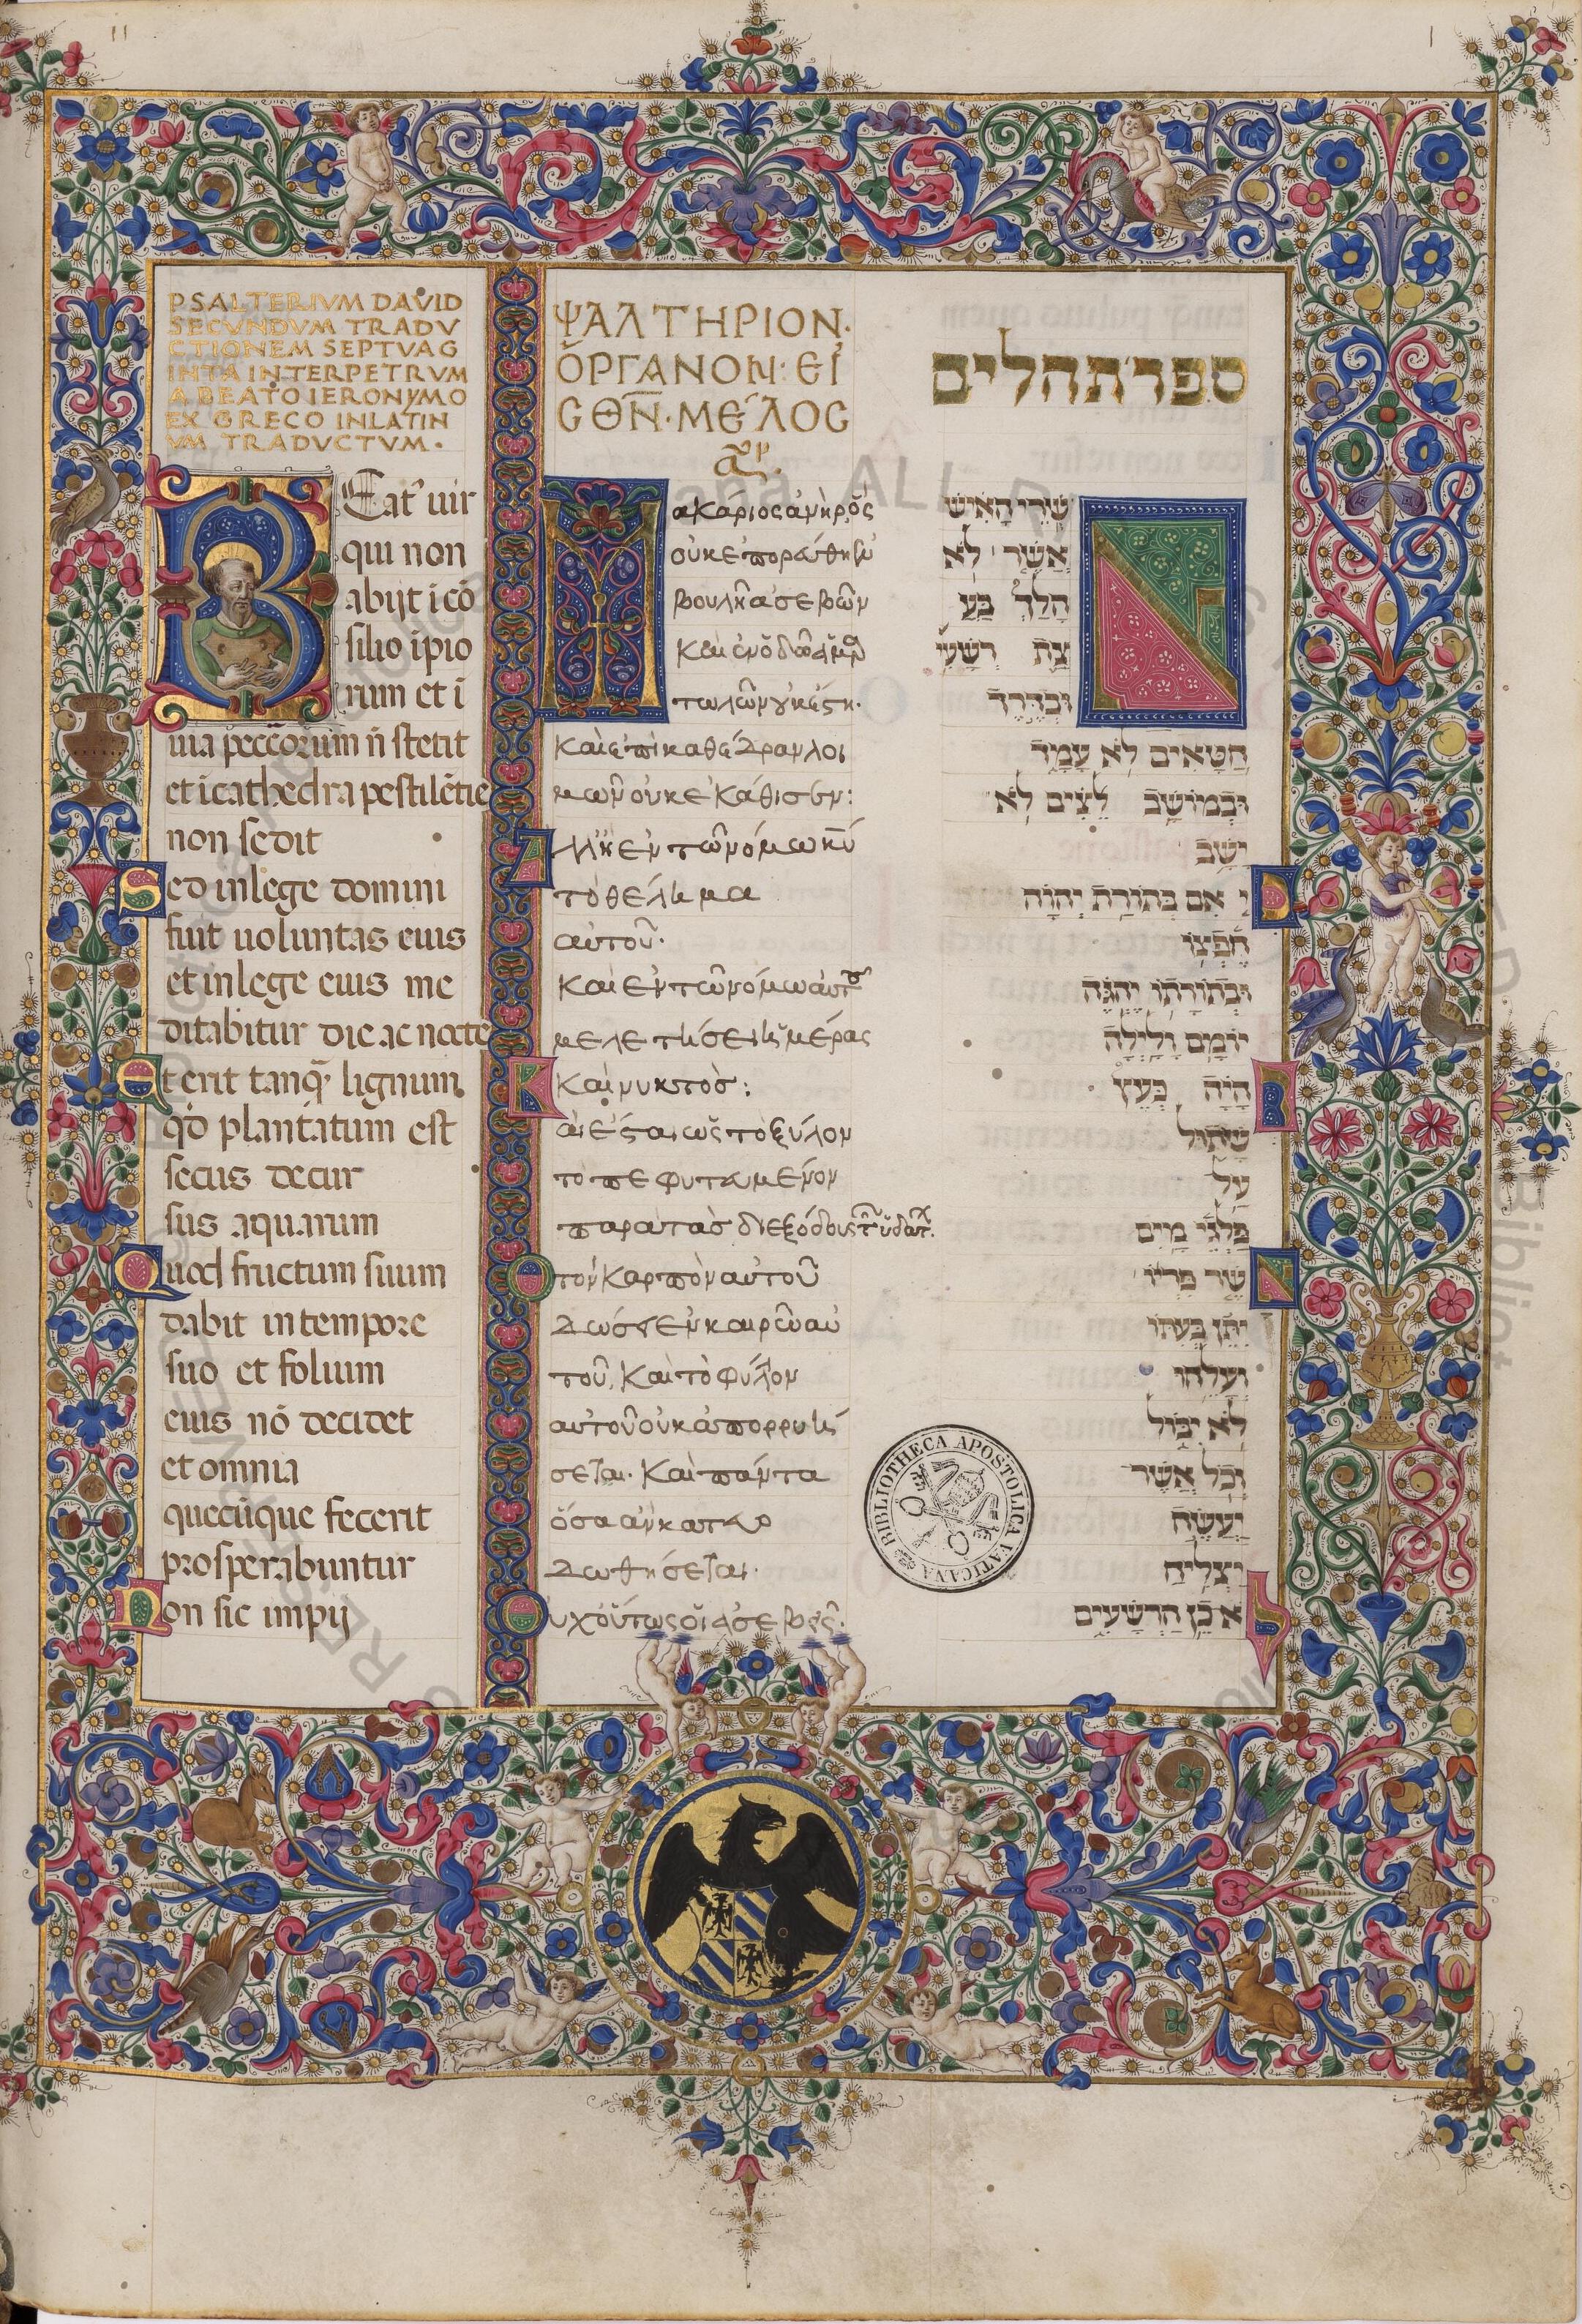 PSALTERIVM DAVID
SECVNDVM TRADV
CTIONEM SEPTVAG
INTA INTERPETRVM
A BEATO IERONYMO
EX GRECO INLATIN
VM TRADVCTVM.
BEat⁹ uir
qui non
abijt ī cō
silio īpio
rum et ī
uia peccōrium n̄ stetit
et ī cathedra pestilētie
non sedit
Sed in lege domini
fuit uoluntas eius
et in lege eius me
ditabitur die ac nocte
Et erit tanq̄ lignum
qd plantatum est
secus decur
sus aquarum
Quod fructum suum
dabit in tempore
suo et folium
eius nō decidet
et omnia
quecūque fecerit
prosperabuntur
Non sic impij
ΨΑΛΤΗΡΙΟΝ.
ὌΡΓΑΝΟΝ: ΕἸ
Σ ΘΝ̅. ΜΈΛΟΣ
Μακάριος ἀνὴρ ὃς
οὐκ ἐπορεύθη ἐν
βουλῆ ἀσεβῶν
καὶ ἐν ὁδῶ ἁμαρ
τωλῶν οὐκ ἔστη.
καὶ ἐπὶ καθέδραν λοι
μῶν οὐκ ἐκάθισεν:
Ἀλλ' ἢ ἐν τῶ νόμω κυ
τὸ θέλημα
αὐτοῦ.
Καὶ ἐν τῶ νόμω αὐτοῦ
μελετήσει ἡμέρας
Καὶ νυκτὸς:
Καὶ ἔσται ὡς τὸ ξύλον
τὸ πεφυτευμένον
παρὰ τὰς διεξόδους τῶν ὑδάτων.
Ὃ τὸν καρπὸν αὐτοῦ
δώσει ἐν καιρῶ αὐ
τοῦ, καὶ τὸ φύλλον
αὐτοῦ οὐκ ἀπορρυή
σεται. Καὶ πάντα
ὅσα ἂν κατευο
δωθήσεται.
Οὐχ οὕτως οἱ ἀσεβεῖς.
ספר תהלים
אַשְׁרֵי הָאִישׁ
אֲשֶׁר לֹא
הָלַךְ בַּעֲ
צַת רְשָׁעִי
וּבְדֶרֶךְ
חַטָּאִים לֹא עָמָד
וּבְמוֹשַׁב לֵצִים לֹא
יָשָׁב
כִּי אִם בְּתוֹרַת יְהוָה
חֶפְצוֹ
וּבְתוֹרָתוֹ יֶהְגֶּה
יוֹמָם וָלָיְלָה
וְהָיָה כְּעֵץ
שָׁתוּל
עַל
פַּלְגֵי מָיִם
אֲשֶׁר פִּרְיוֹ
יִתֵּן בְּעִתּוֹ
וְעָלֵהוּ
לֹא יִבּוֹל
וְכֹל אֲשֶׁר
יַעֲשֶׂה
יַצְלִיחַ
לֹא כֵן הָרְשָׁעִים
BIBLIOTHECA APOSTOLICA VATICANA